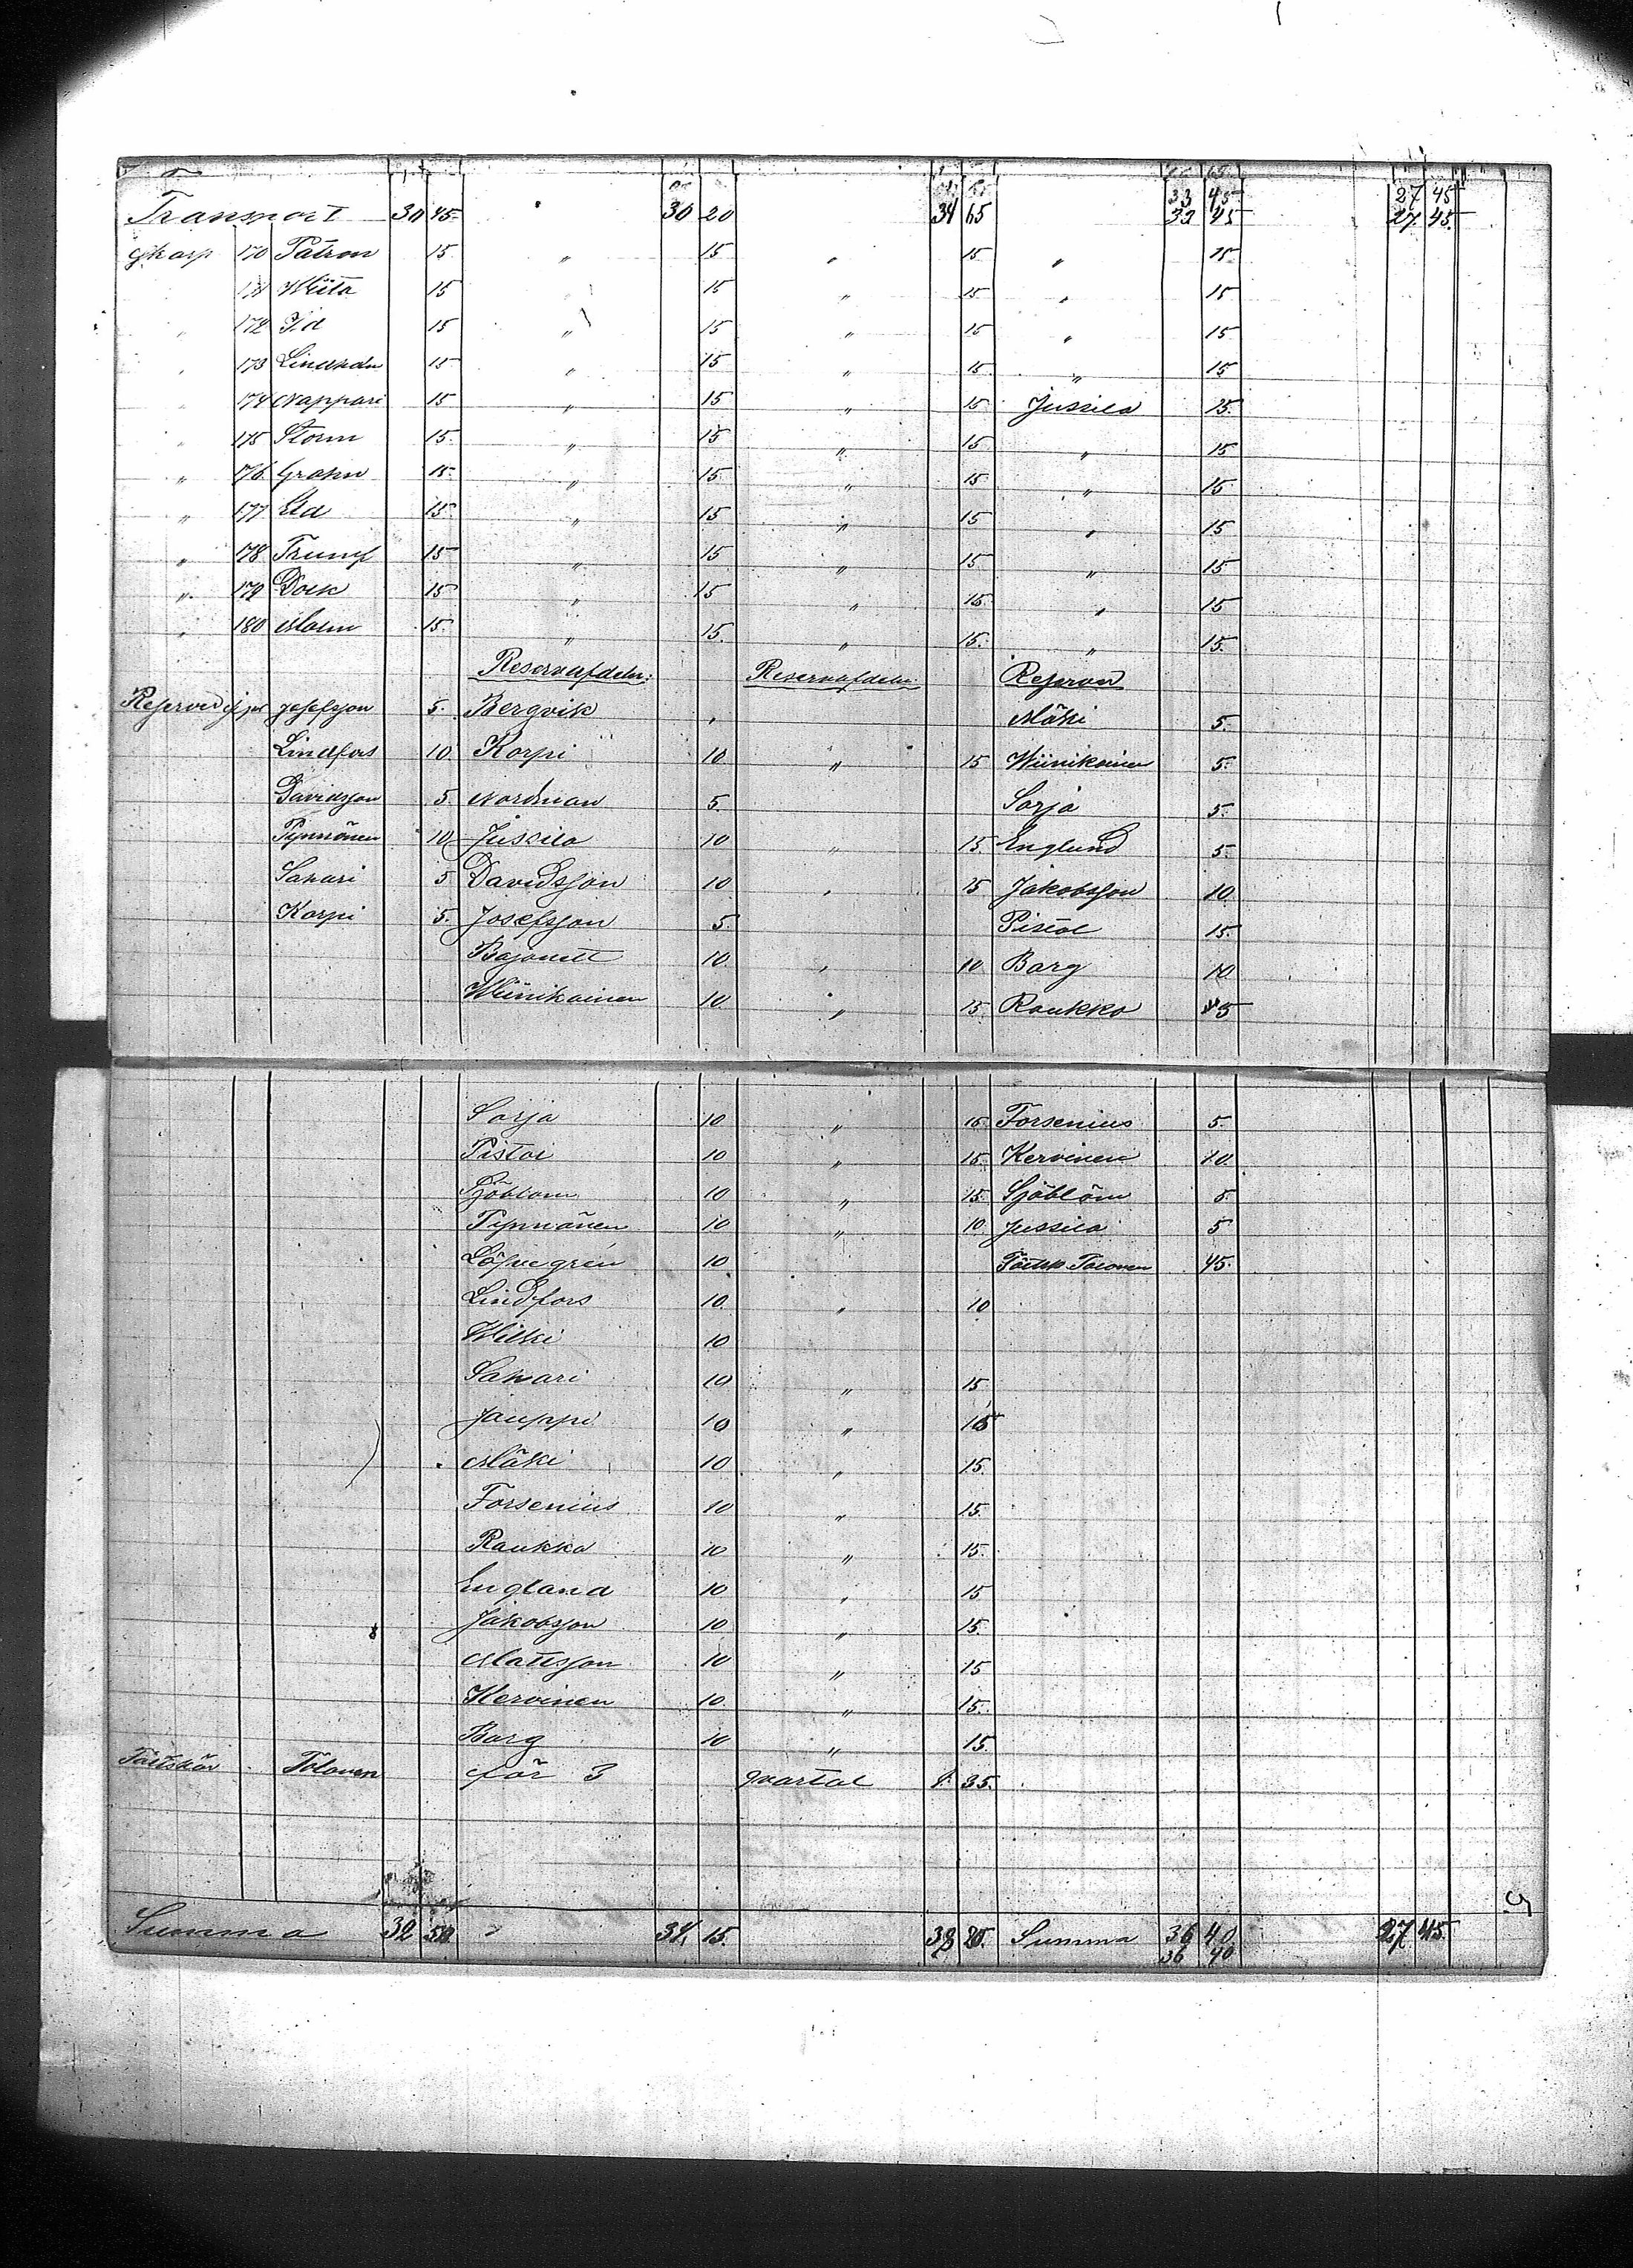 Transport 30 45 " 30 20 34 65 33 45 27 45
33 45 27 45
Skarp 170 Patron 15 " 15 " 15 " 15
171 Wiita 15 " 15 " 15 " 15
" 172 Id 15 " 15 " 15 " 15
" 173 15 " 15 " 15 " 15
" 174 Nappari 15 " 15 " 15 Jussila 15
" 175 Storm 15 " 15 " 15 " 15
" 176 Grahn 15 " 15 " 15 " 15
" 177 Eld 15 " 15 " 15 " 15
" 178 Trumf 15 " 15 " 15 " 15
" 179 Dolk 15 " 15 " 15 " 15
" 180 Malm 15 " 15 " 15 " 15
Reservafdeln: Reservafdeln: Reserven
Reserved Josefsson 5 Bergvik " Mäki 5
Lindfors 10 Korpi 10 " 15 Wiinikainen 5
Davidsson 5 Nordman 5 Sarja 5
Pynnönen 10 Jussila 10 " 15 Englund 5
Sakari 5 Davidsson 10 " 15 Jakobsson 10
Korpi 5 Josefsson 5 Pistol 15
Bajonett 10 " 10 Barg 10
Wiinikainen 10 " 15 Raukko 5
Sarja 10 " 15 Forsenius 5
Pistol 10 " 15 Kervinen 10
Sjöblom 10 " 15 Sjöblöm 5
Pynnönen 10 " 10 Jussila 5
Löfvegren 10 Toronen 45
Lindfors 10 " 10
Wilki 10
Sakari 10 " 15
Jauppi 10 " 15
Mäki 10 " 15
Forsenius 10 " 15
Raukka 10 " 15
England 10 " 15
Jakobsson 10 " 15
Mattsson 10 " 15
Kervinen 10 " 15
Borg 10 " 15
Fältskär Tolonen för 3 qvartal 1 35
Summa 32 50 " 34 15 38 20 Summa 36 40 27 45
36 40
5